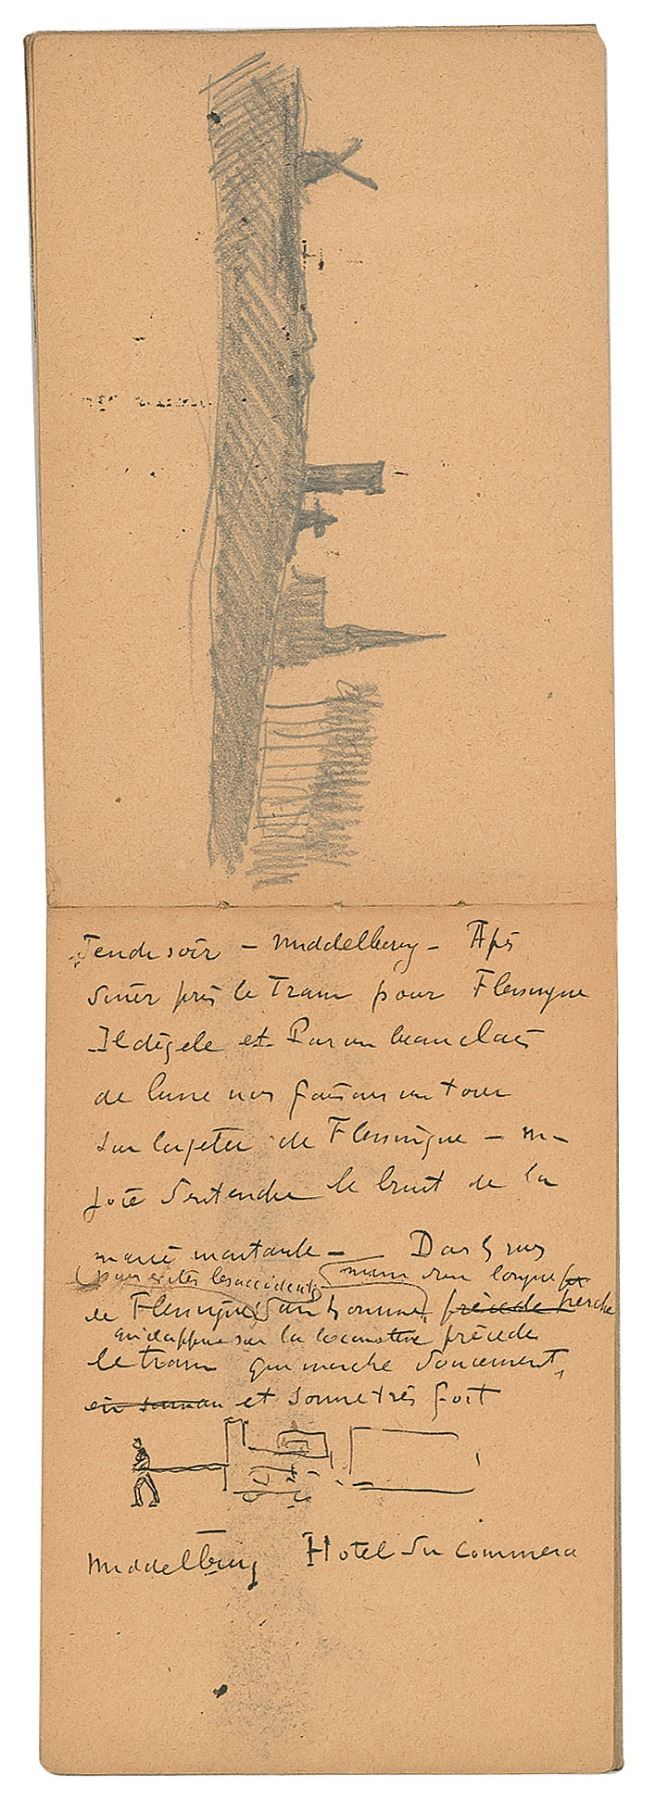 Jeudi soir – Middelburg – Aps
diner pris le Tram pour Flessingue
Il dégele et Par un beau clair
de lune nos faisons un tour
sur la jetée de Flessingue – m–
joie d'entendre le bruit de la
marée montante – Das les rues
(pour eviter les accidents) muni d'une longue
de Flessingue un homme, précède perche
qu'il appuie sur la locomotive précède
le tram qui marche doucement,
et sonne très fort
Middelburg Hotel du Commerce